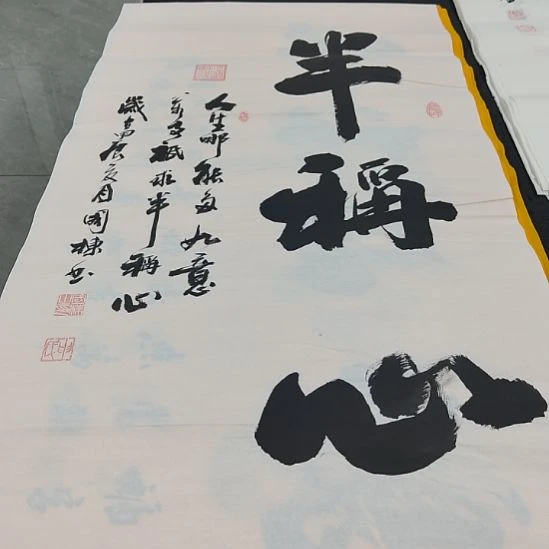 半稱心
人生哪能多如意
萬事祗求半稱心
歲在甲辰夏月國棟書